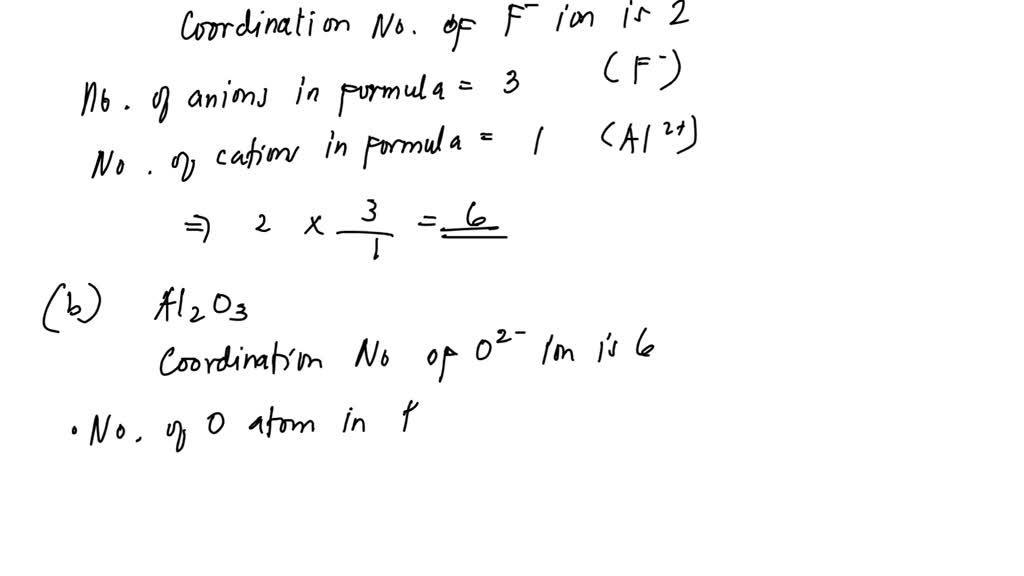 Coordination No. of F⁻ ion is 2
No. of anions in formula = 3 (F⁻)
No. of cation in formula = 1 (Al²⁺)
⇒ 2 × 3/1 = 6
(b) Al₂O₃
Coordination No of O²⁻ ion is 6
• No. of O atom in f